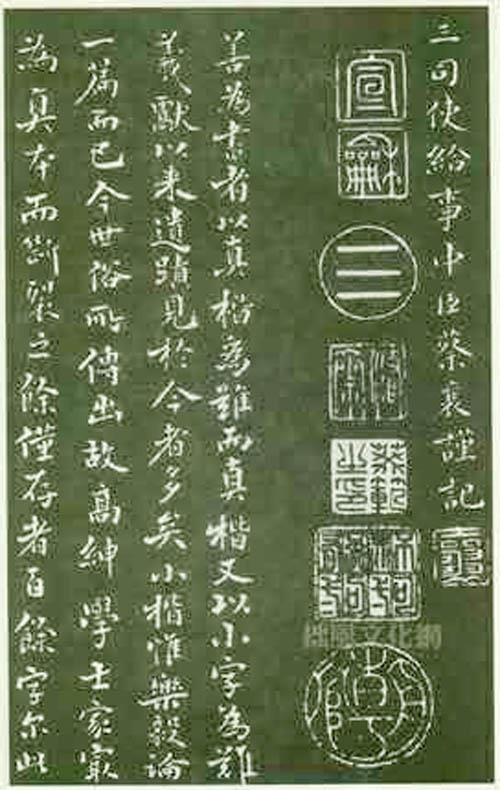 三司使給事中臣蔡襄謹記
宣
龢
善為書者以真楷為難而真楷又以小字為難
羲獻以来遺蹟見於今者多矣小楷惟樂毅論
一篇而已今世俗所傳出故高紳學士家最
為真本而斷裂之餘僅存者百餘字尔此